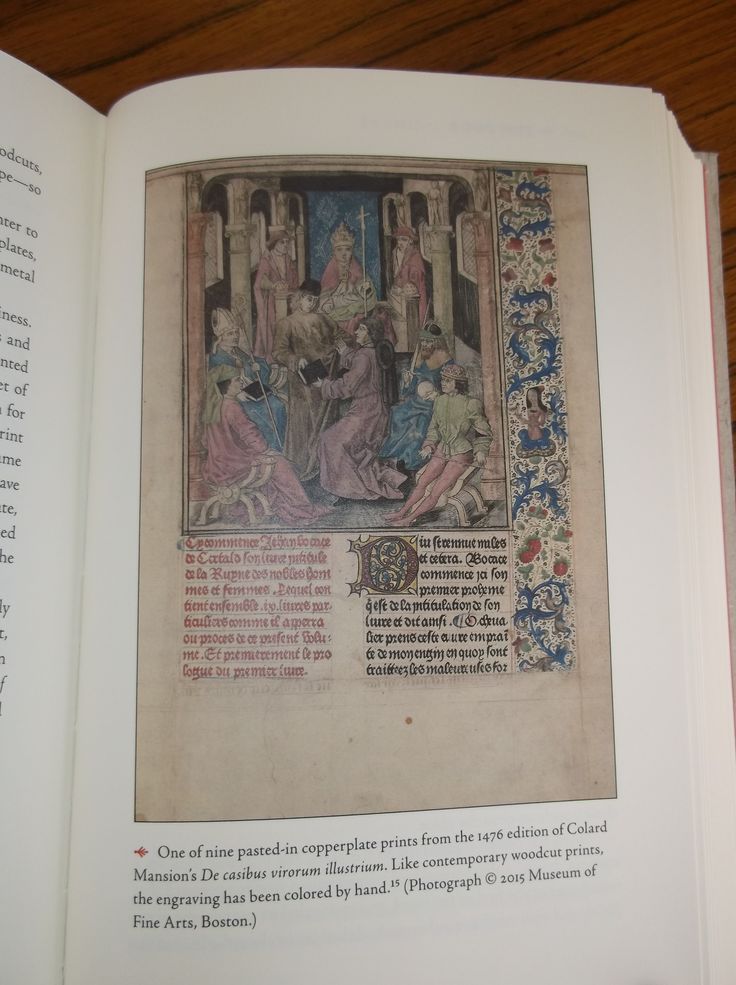 odcuts,
pe—so
nter to
plates,
metal
iness.
s and
nted
et of
for
rint
ame
ave
te,
ed
he
ly
t,
n
f
Cy commence Jehan bocace
de Certald son liure intitule
de la Ruyne des nobles hom
mes et femmes . Lequel con
tient ensemble .ix. liures par-
ticuliers comme il apperra
ou proces de ce present volu-
me . Et premierement le pro
logue du premier liure.
Diu strennue miles
et cetera. Bocace
commence icy son
premier proheme
q̃ est de la intitulation de son
liure et dit ainsi.
lier prens ceste euure emprai
te de mon engin en quoy sont
traittiez les maleureuses for
One of nine pasted-in copperplate prints from the 1476 edition of Colard
Mansion's De casibus virorum illustrium. Like contemporary woodcut prints,
the engraving has been colored by hand.15 (Photograph © 2015 Museum of
Fine Arts, Boston.)